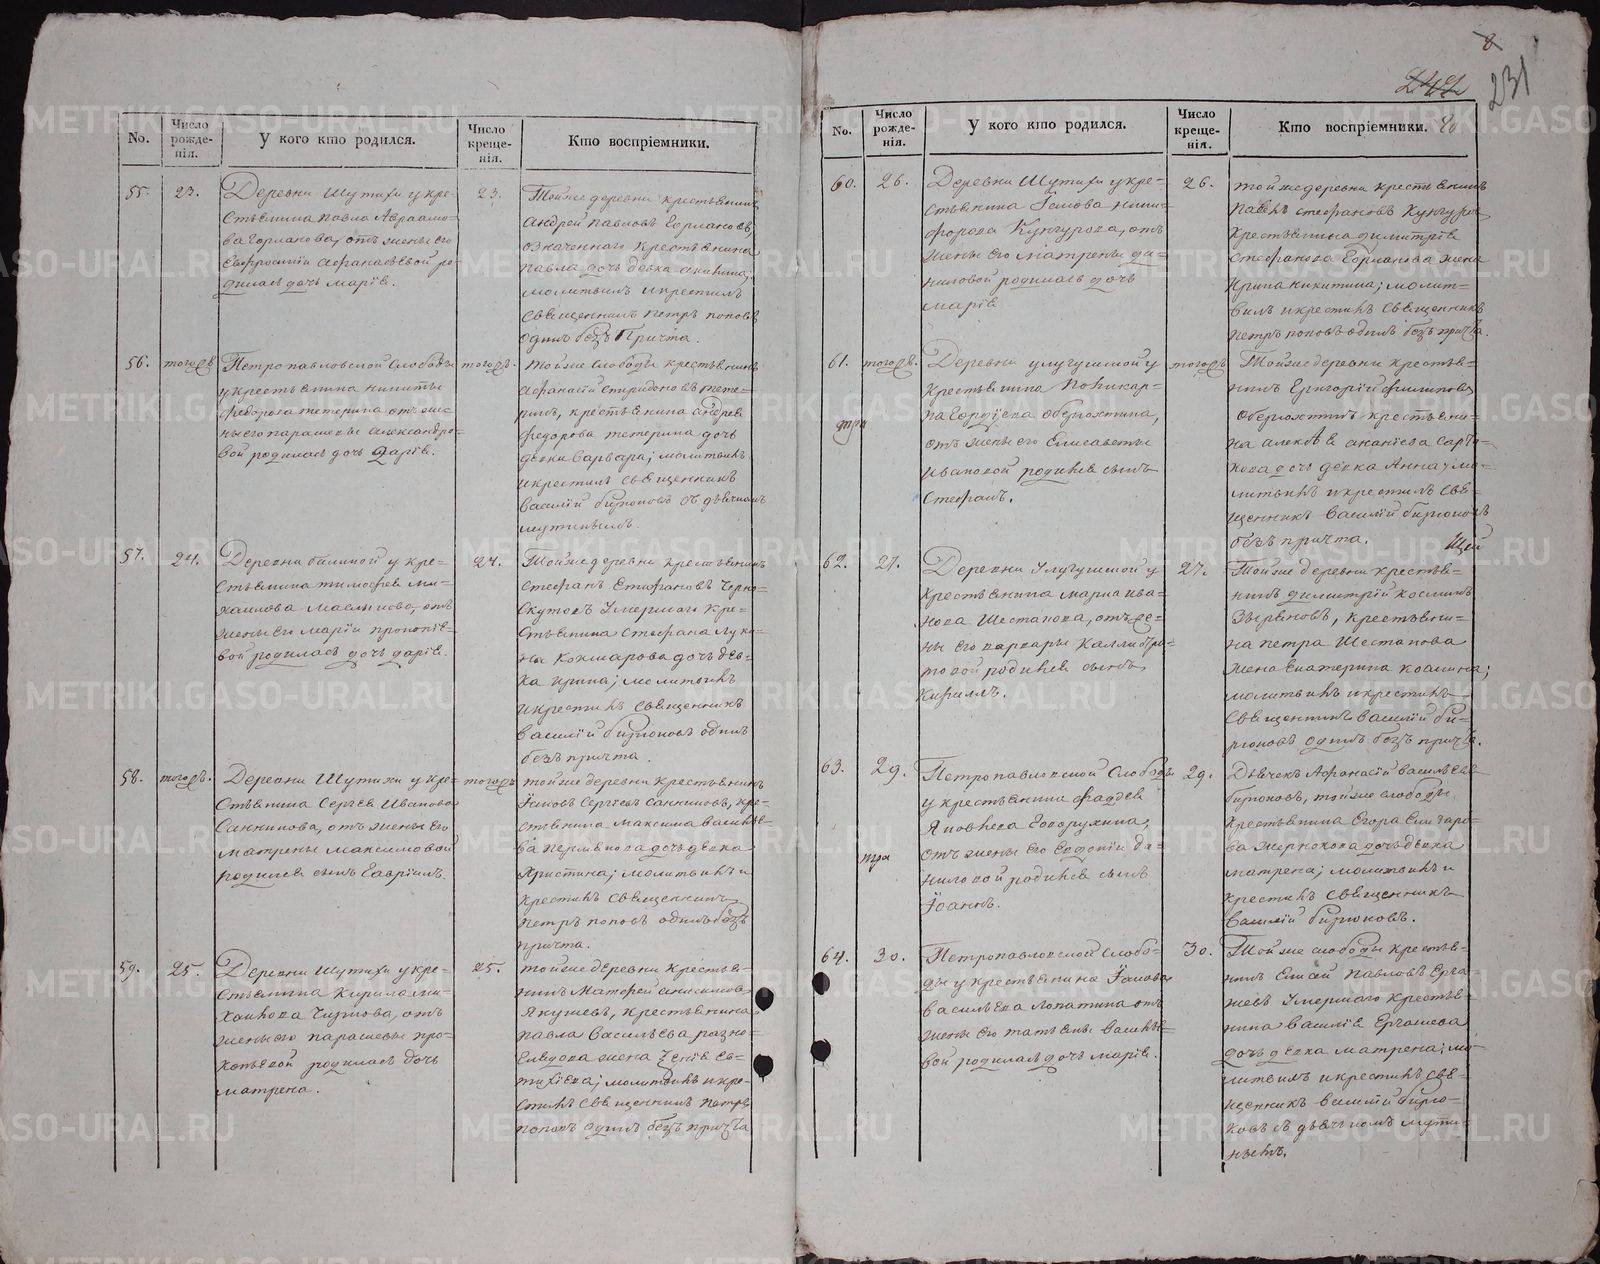 8
242
231
No.
Число рожденія.
У кого кто родился.
Число крещенія.
Кто воспріемники.
55.
23.
Деревни Шутихи у кре-
стьянина Павла Авраамо-
ва Горланова, отъ жены его
Евфросиніи Афанасьевой ро-
дилась дочь Марія.
23.
Тойже деревни крестьянинъ
Андрей Павловъ Горлановъ,
означеннаго крестьянина
Павла дочь девка Акилина;
молитвилъ и крестилъ
священникъ Петръ Поповъ
одинъ безъ Причта.
56.
тогожъ
Петропавловской Слободы
у крестьянина Никиты
Федорова Тетерина отъ же-
ны его Парасковьи Александро-
вой родилась дочь Дарія.
тогожъ.
Тойже Слободы крестьянинъ
Афанасій Спиридоновъ Тете-
ринъ, крестьянина Андрея
Федорова Тетерина дочь
девка Варвара; молитвилъ
и крестилъ священникъ
Василій Бирюковъ съ дьячкомъ
57.
24.
Деревни
у кре-
стьянина Тимофея Ми-
хаилова
отъ
жены его Маріи Прокопіе-
вой родилась дочь Дарія.
24.
Тойже деревни крестьянинъ
Стефанъ
Черно-
скутовъ умершаго кре-
стьянина Стефана Луки-
на Кокшарова дочь дев-
ка Ирина; молитвилъ
и крестилъ священникъ
Василій Бирюковъ одинъ
безъ причта.
58.
тогожъ.
Деревни Шутихи у кре-
стьянина Сергея Иванова
Санникова, отъ жены его
Матрены Максимовой
родился сынъ Гавріилъ.
тогожъ
тойже деревни крестьянинъ
Іаковъ Сергеевъ Санниковъ, кре-
стьянина Максима Василье-
ва
дочь девка
Христина; молитвилъ и
крестилъ священникъ
Петръ Поповъ одинъ безъ
причта.
59.
25.
Деревни Шутихи у кре-
стьянина Кирила Ми-
хайлова
отъ
жены его Парасковьи Про-
копьевой родилась дочь
Матрена.
25.
тойже деревни крестья-
нинъ Матфей Анисимовъ
Якушевъ, крестьянина
Павла Васильева
жена
молитвилъ и кре-
стилъ священникъ Петръ
Поповъ одинъ безъ причта
No.
Число рожденія.
У кого кто родился.
Число крещенія.
Кто воспріемники.
60.
26.
Деревни Шутихи у кре-
стьянина Іакова Ники-
форова Кунгурова, отъ
жены его Матрены Да-
ниловой родилась дочь
Марія.
26.
тойже деревни крестьянинъ
Павелъ Стефановъ Кунгуровъ
крестьянина Димитрія
Стефанова Горланова жена
Ирина Никитина; молит-
вилъ и крестилъ священникъ
Петръ Поповъ одинъ безъ причта.
61.
тогожъ.
Деревни Улугушкой у
крестьянина Поликар-
па Гордеева Оберюхтина,
отъ жены его Елисаветы
Ивановой родился сынъ
Стефанъ.
тогожъ
Тойже деревни крестья-
нинъ Григорій Филиповъ
Оберюхтинъ крестьяни-
на
Ананіева
дочь девка Анна; мо-
литвилъ и крестилъ свя-
щенникъ Василій Бирюковъ
безъ причта.
62.
27.
Деревни Улугушкой у
крестьянина
Ива-
нова Шестакова, отъ же-
ны его Варвары
родился сынъ
Кириллъ.
27.
Тойже деревни крестья-
нинъ Димитрій Космин
Зыряновъ, крестьяни-
на Петра Шестакова
жена Екатерина Космина;
молитвилъ и крестилъ
священникъ Василій Би-
рюковъ одинъ безъ причта.
63.
29.
Петропавловской Слободы
у крестьянина Фаддея
Яковлева
отъ жены его Евдокіи Да-
ниловой родился сынъ
Іоаннъ.
29.
Дьячекъ Афанасій Васильевъ
Бирюковъ, тойже слободы
крестьянина Егора Елизаро-
ва
дочь девка
Матрена; молитвилъ и
крестилъ священникъ
Василій Бирюковъ.
64.
30.
Петропавловской Слобо-
ды у крестьянина Іакова
Васильева Лопатина отъ
жены его Татьяны Василье-
вой родилась дочь Марія.
30.
Тойже слободы крестья-
нинъ
Павловъ Ерга-
шевъ умершаго крестья-
нина Василія Ергашева
дочь девка Матрена; мо-
литвилъ и крестилъ свя-
щенникъ Василій Бирю-
ковъ съ дьячкомъ